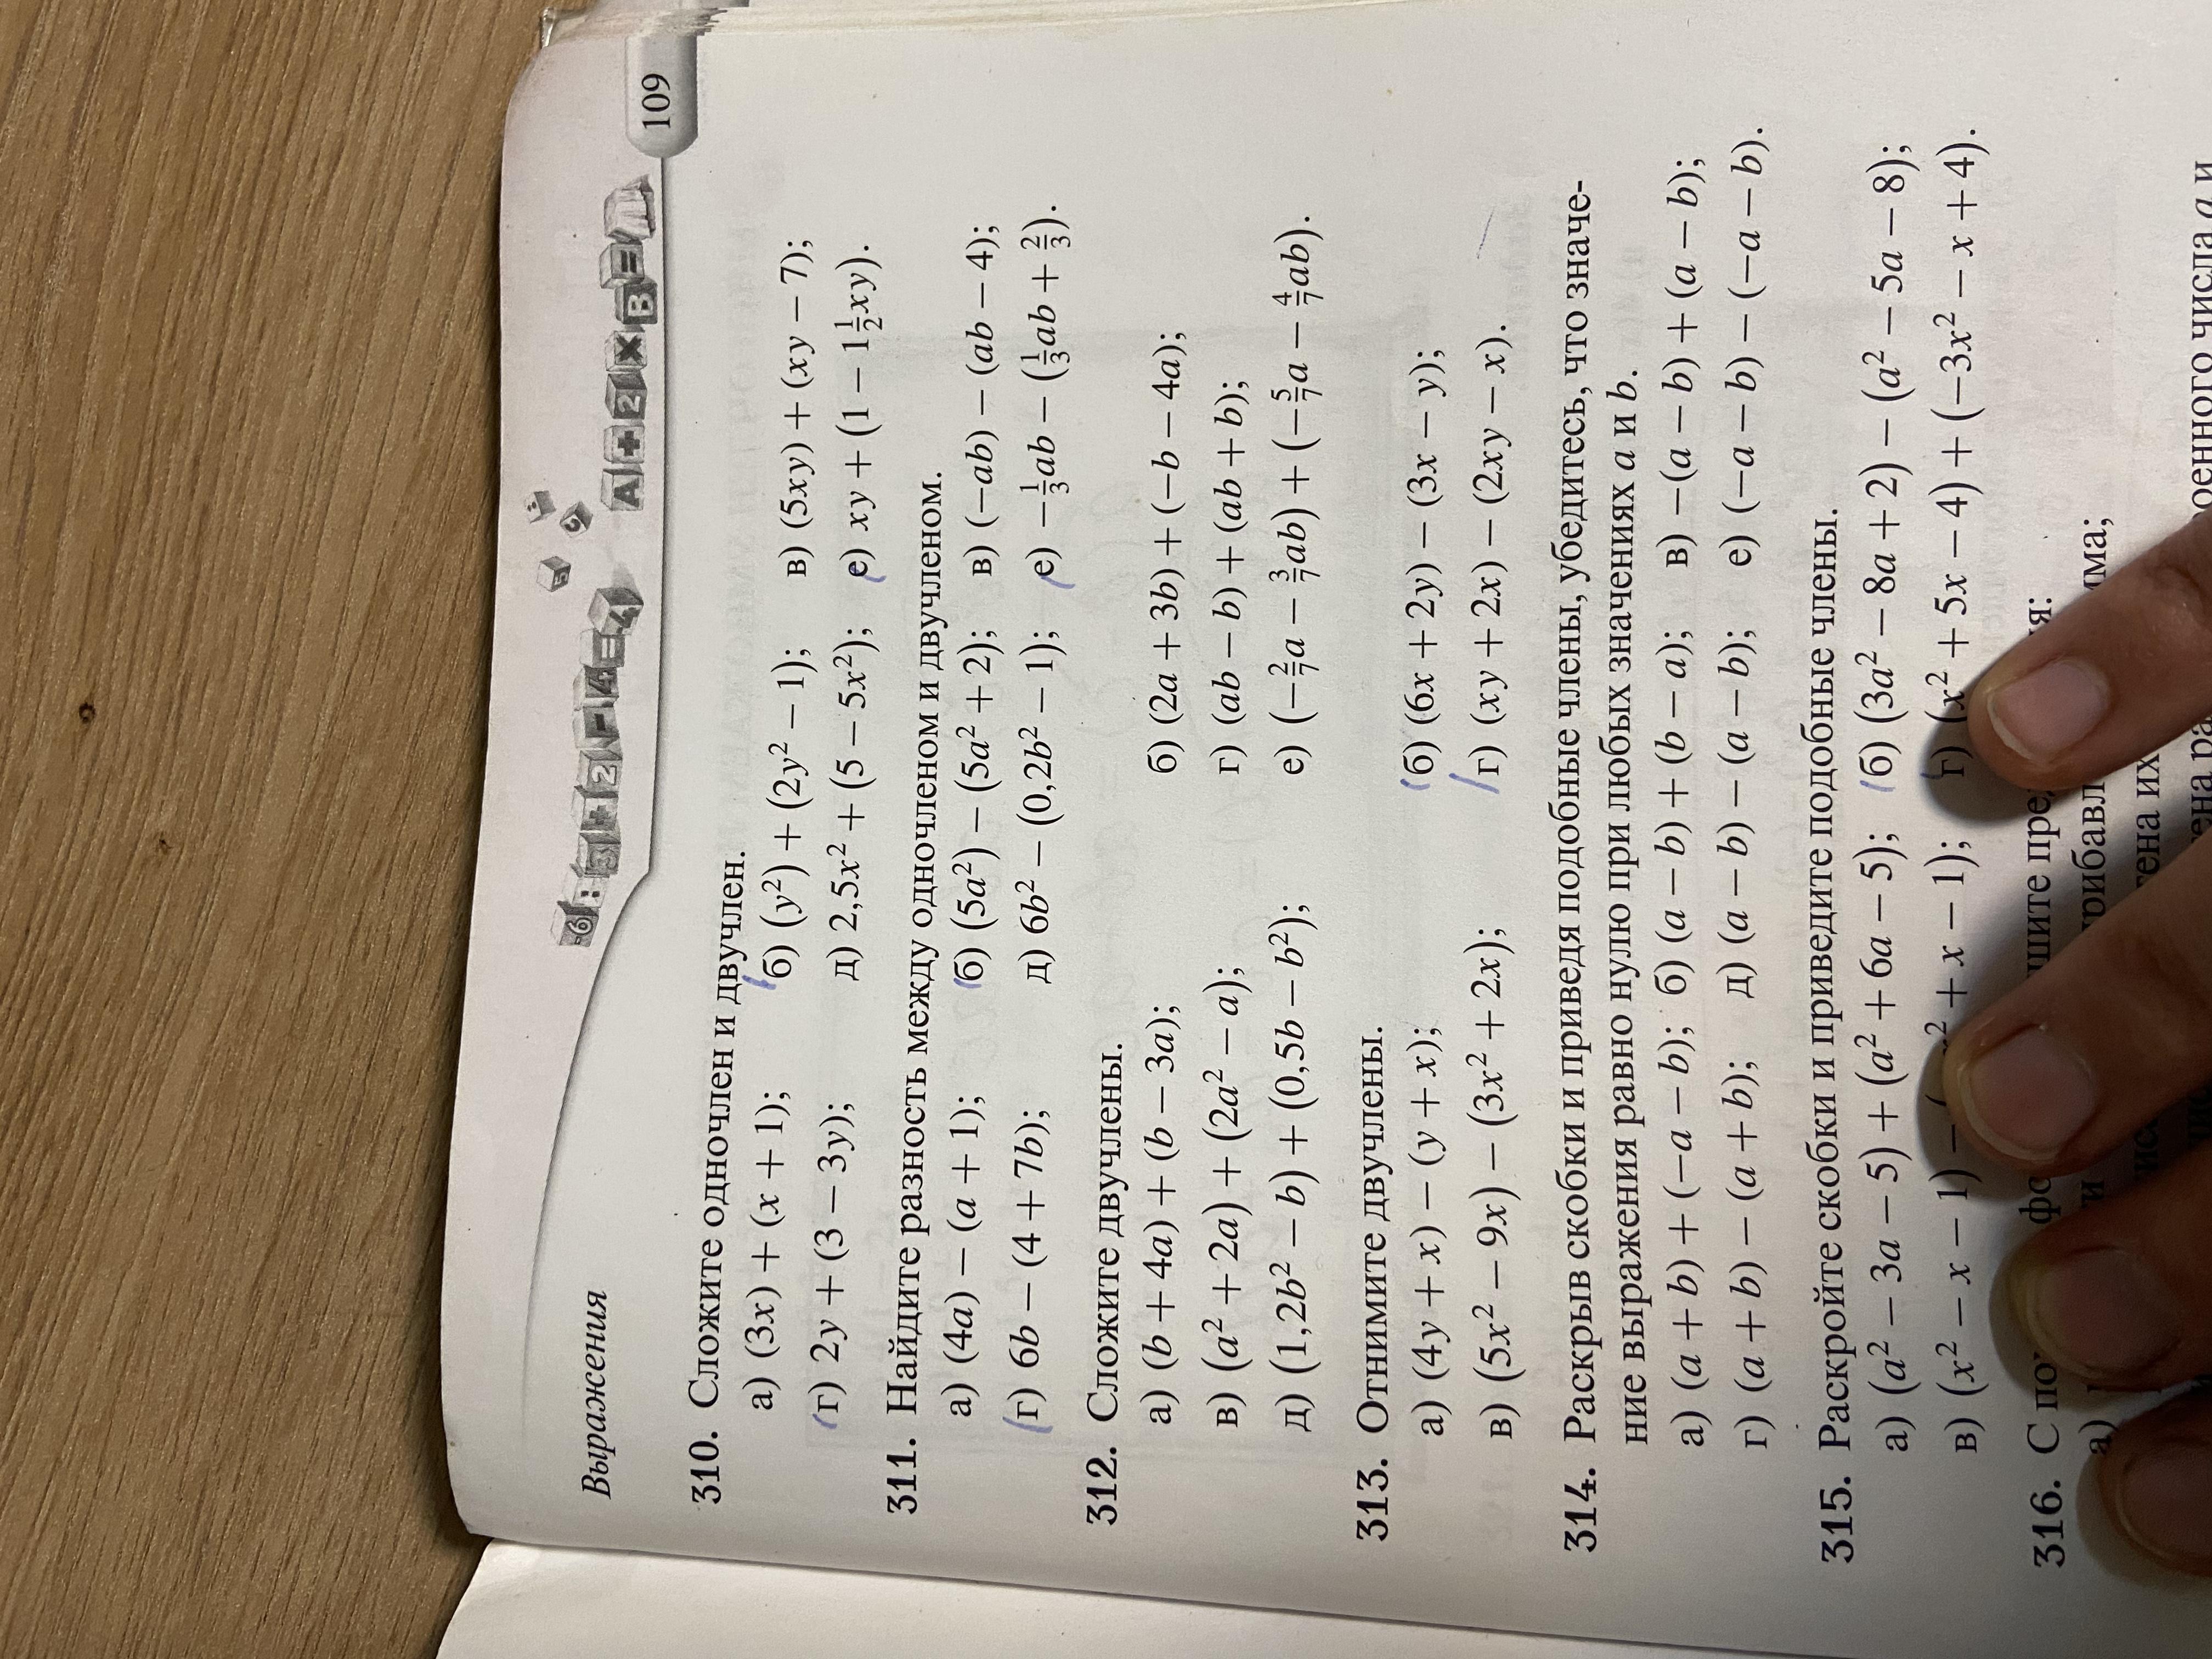 Выражения
109
310. Сложите одночлен и двучлен.
а) (3x) + (x + 1); б) (y² ) + (2y² − 1); в) (5xy) + (xy − 7);
г) 2y + (3 − 3y); д) 2,5x² + (5 − 5x²); е) xy + (1 − 1 1/2 xy).
311. Найдите разность между одночленом и двучленом.
а) (4a) − (a + 1); б) (5a²) − (5a² + 2); в) (−ab) − (ab − 4);
г) 6b − (4 + 7b); д) 6b² − (0,2b² − 1); е) −1/3 ab − (1/3 ab + 2/3).
312. Сложите двучлены.
а) (b + 4a) + (b − 3a); б) (2a + 3b) + (−b − 4a);
в) (a² + 2a) + (2a² − a); г) (ab − b) + (ab + b);
д) (1,2b² − b) + (0,5b − b²); е) (−2/7 a − 3/7 ab) + (−5/7 a − 4/7 ab).
313. Отнимите двучлены.
а) (4y + x) − (y + x); б) (6x + 2y) − (3x − y);
в) (5x² − 9x) − (3x² + 2x); г) (xy + 2x) − (2xy − x).
314. Раскрыв скобки и приведя подобные члены, убедитесь, что значе-
ние выражения равно нулю при любых значениях a и b.
а) (a + b) + (−a − b); б) (a − b) + (b − a); в) −(a − b) + (a − b);
г) (a + b) − (a + b); д) (a − b) − (a − b); е) (−a − b) − (−a − b).
315. Раскройте скобки и приведите подобные члены.
а) (a² − 3a − 5) + (a² + 6a − 5); б) (3a² − 8a + 2) − (a² − 5a − 8);
в) (x² − x − 1) − ( + x − 1); г) (x² + 5x − 4) + (−3x² − x + 4).
316. С
а)